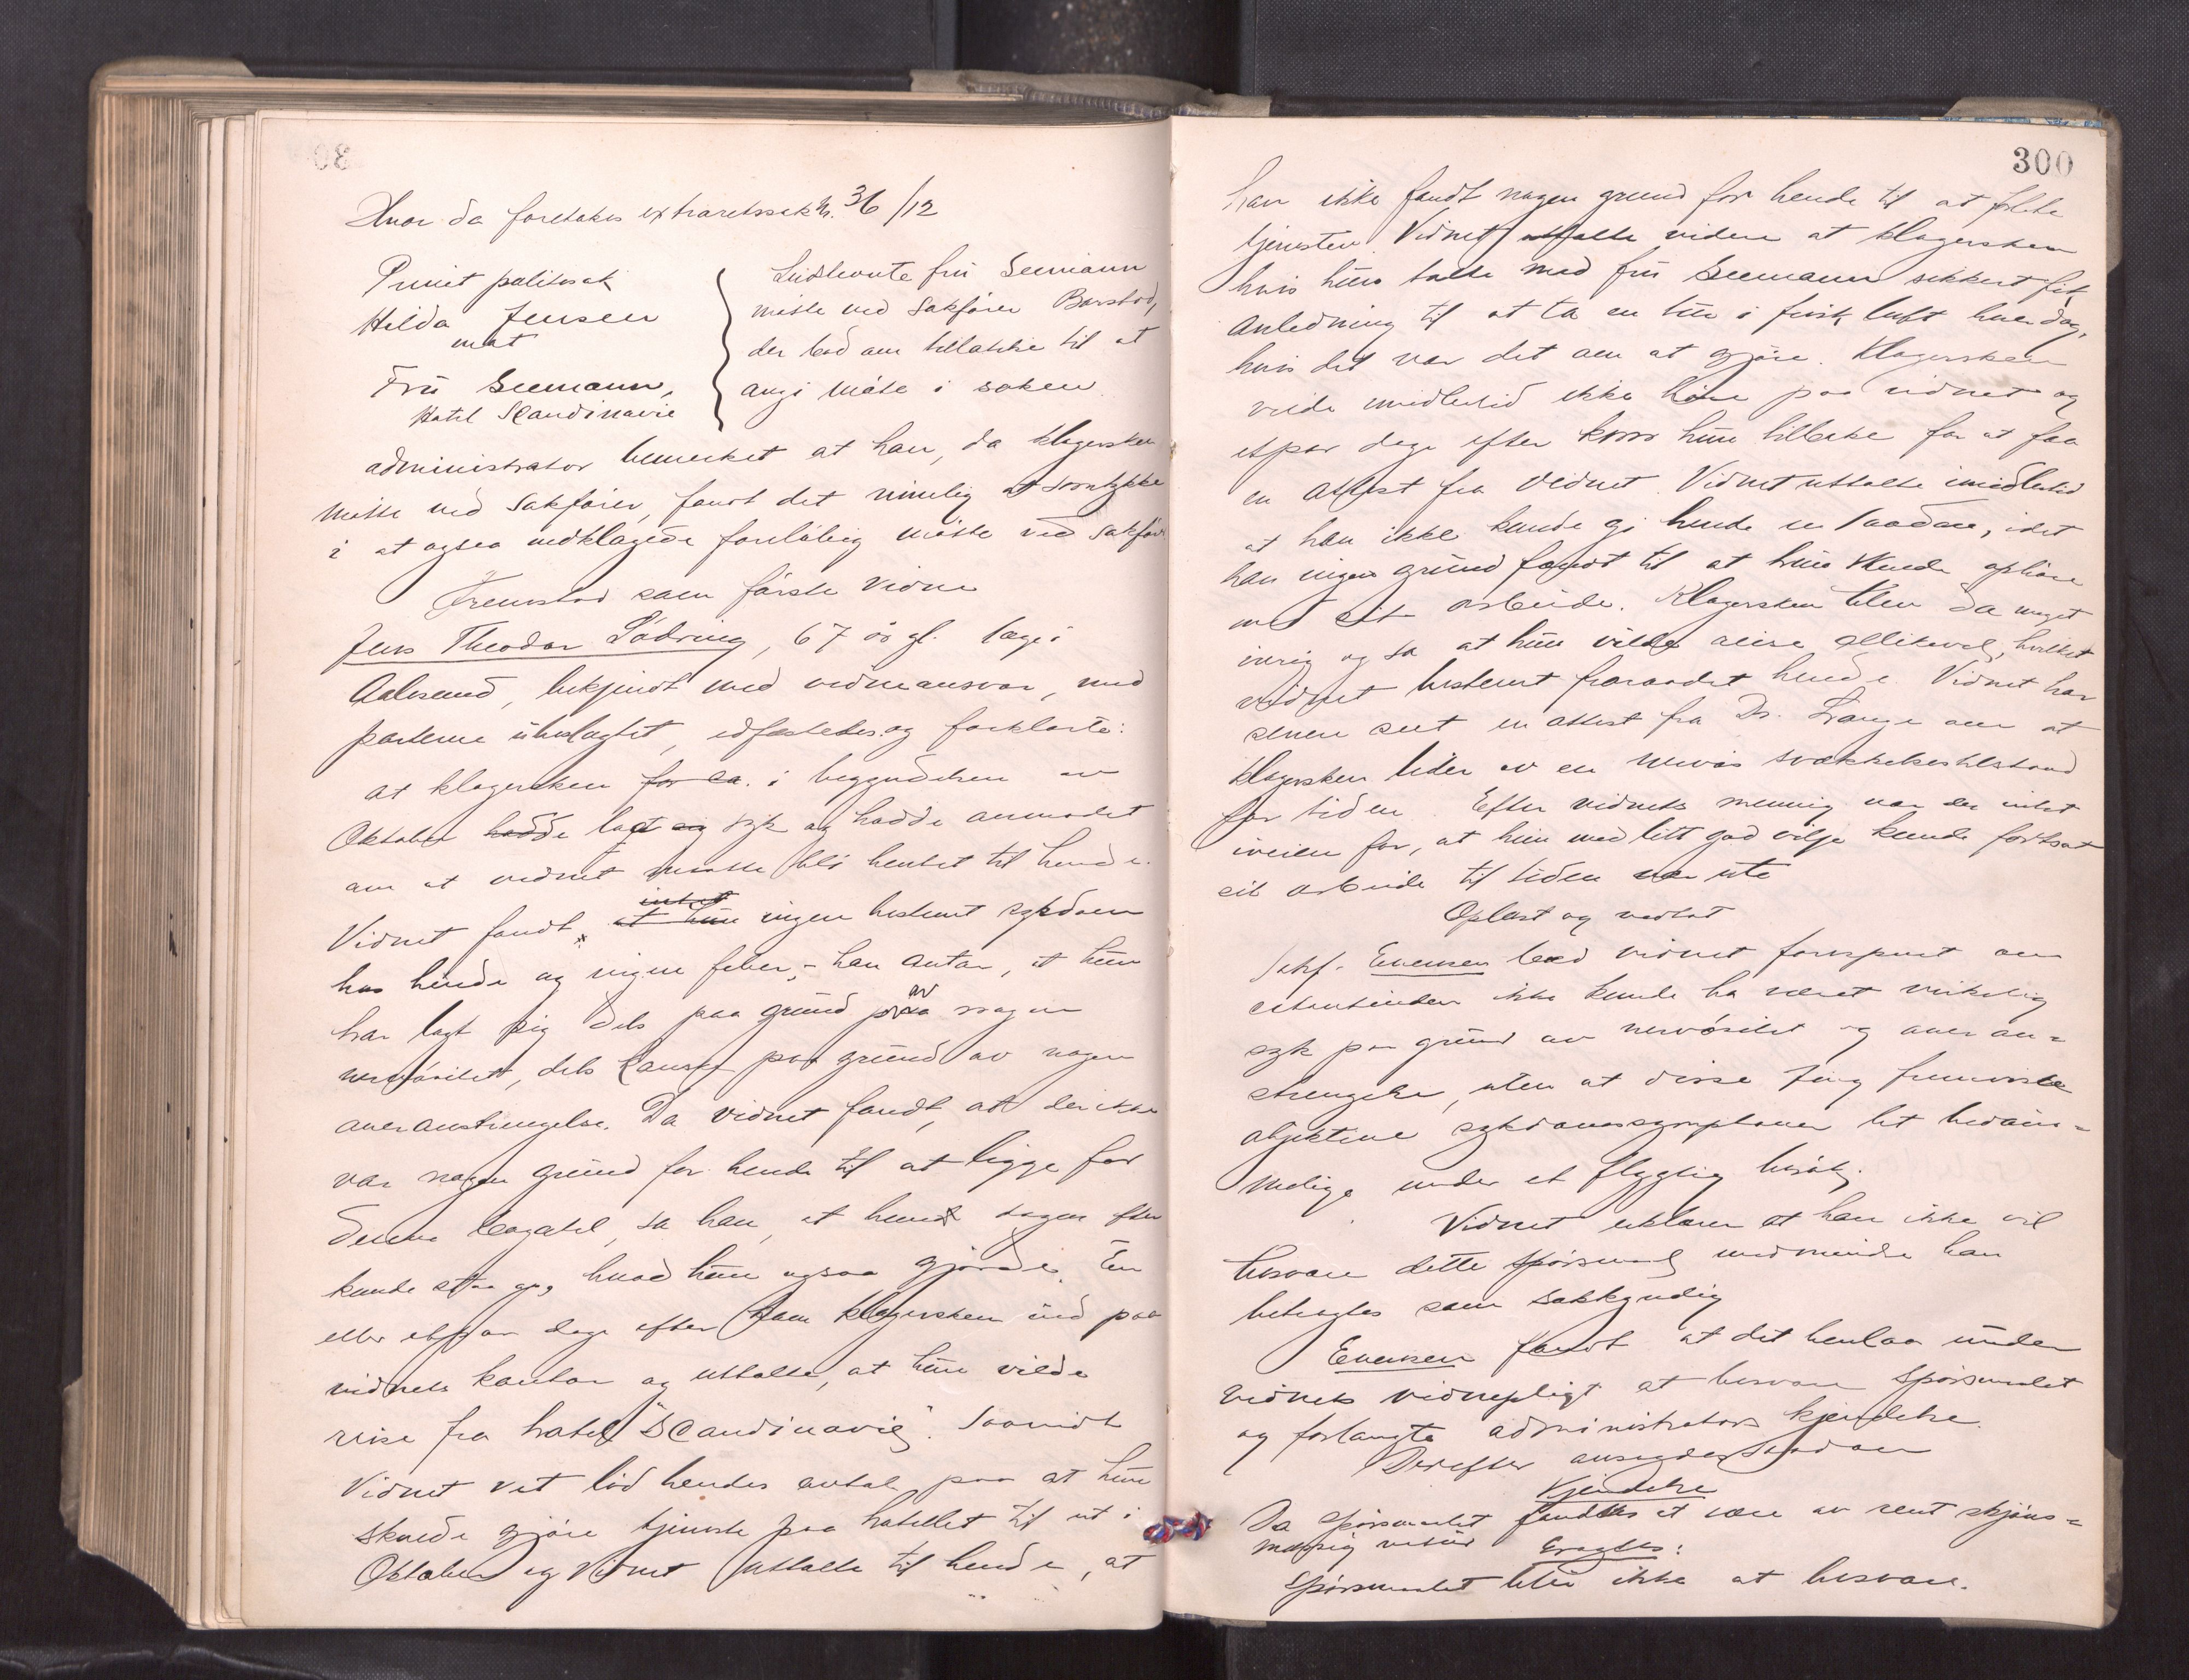 Hvor da foretokes extraretssak N. 36/12
Privat politisak
Hilda Jensen
mot
Frü Seemann,
Hotel Scandinavie
Indklevnte frü Seemann
møtte ved Sakfører Barstad,
der bad om tillatelse til at
angi møte i saken.
administrator bemerket at han, da klagersken
møtte ved Sakfører, fandt det rimelig at samtykke
i at ogsaa indklagede foreløbig møtte ved sakfør.
Fremstod som første vidne
Jens Theodor Lödrüng, 67 år gl. læge i
Aalesund, bekjendt med vidneansvar, med
parterne übeslægtet, edfæstedes og forklarte:
at klagersken for ca. i begyndelsen av
Oktober hadde lagt sig syk og hadde anmodet
om at vidnet maatte bli hentet til hende.
intet
Vidnet fandt at hün ingen bestemt sygdom
hos hende og ingen feber, - han antar, at hün
av
har lagt sig dels paa gründ paa nogen
nervøsitet, dels kanske paa gründ av nogen
overanstrengelse. Da vidnet fandt, at der ikke
var nogen gründ for hende til at ligge for
denne bagatel, sa han, at hende dagen efter
kunde staa op, hvad hün ogsaa gjorde. En
eller etpar dage efter kom klagersken ind paa
vidnets kontor og uttalte, at hün vilde
reise fra hotel "Scandinavie". Saavidt
Vidnet vet lød hendes avtale paa at hün
skulde gjöre tjeneste paa hotellet til ut i
Oktober og Vidnet uttalte til hende, at
300
han ikke fandt nogen grund for hende til at
tjenesten. Vidnet uttalte videre at klagersken
hvis hün talte med frü Seemann sikkert fik
Anledning til at ta en tür i frisk luft hver dag,
hvis det var det om at gjöre. Klagersken
vilde imidlertid ikke höre paa vidnet og
etpar dage efter kom hün tilbake for at faa
en attest fra Vidnet. Vidnet uttalte imidlertid
at han ikke kunde gi hende en saadan, idet
han ingen gründ fandt til at hün skulde ophöre
med sit arbeide. Klagersken blev da meget
ivrig og sa at hün vilde reise allikevel, hvilket
vidnet bestemt fraraadet hende. Vidnet har
senere seet en attest fra Dr. Lange om at
klagersken lider av en nervøs svækkelsestilstand
for tiden. Efter vidnets mening var der intet
iveien for, at hün med litt god vilje kunde fortsat
sit arbeide til tiden var ute
Oplæst og vedtat
Sakf. Evensen bad vidnet forespurt om
ikke kunde ha været virkelig
syk paa gründ av nervøsitet og overan=
strengelse, uten at disse ting fremviste
objektive sykdomssymptomer let bedöm=
melige under et flygtig besök.
Vidnet erklærer at han ikke vil
besvare dette spörsmaal medmindre han
betragtes som sakkyndig
Evensen fandt at det henlaa ünder
vidnets vidnepligt at besvare spörsmaalet
og forlangte administrators kjendelse.
Derefter avsagdes saadan
Kjendelse
Da spörsmaalet fandtes at være av rent skjöns=
mæssig natür Eragtes:
Spörsmaalet blir ikke at besvare.